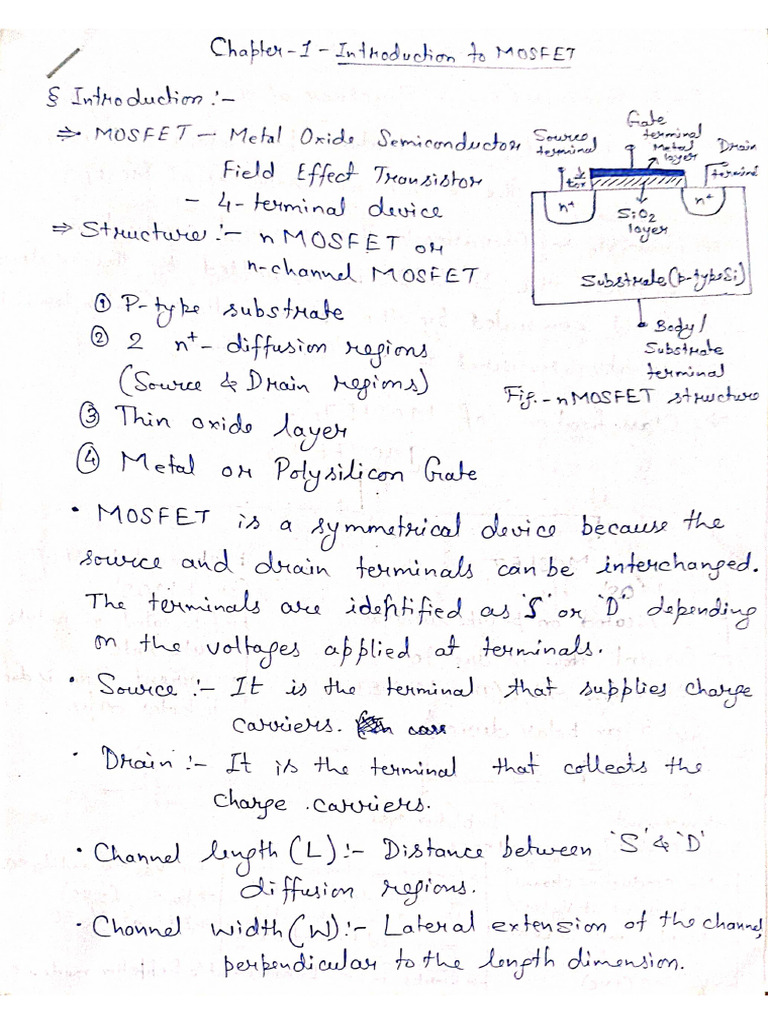 Chapter-1 - Introduction to MOSFET
§ Introduction :-
⇒ MOSFET – Metal Oxide Semiconductor
Field Effect Transistor
- 4-terminal device
⇒ Structure :- nMOSFET or
n-channel MOSFET
① P-type substrate
② 2 n⁺- diffusion regions
(Source & Drain regions)
③ Thin oxide layer
④ Metal or Polysilicon Gate
Source
terminal
Gate
terminal
Metal
layer
Drain
tox
n⁺
n⁺
SiO₂
layer
Substrate (p-type Si)
Body/
Substrate
terminal
Fig. - nMOSFET structure
• MOSFET is a symmetrical device because the
source and drain terminals can be interchanged.
The terminals are identified as 'S' or 'D' depending
on the voltages applied at terminals.
• Source :- It is the terminal that supplies charge
carriers.
• Drain :- It is the terminal that collects the
charge carriers.
• Channel length (L) :- Distance between 'S' & 'D'
diffusion regions.
• Channel width (W) :- Lateral extension of the channel,
perpendicular to the length dimension.